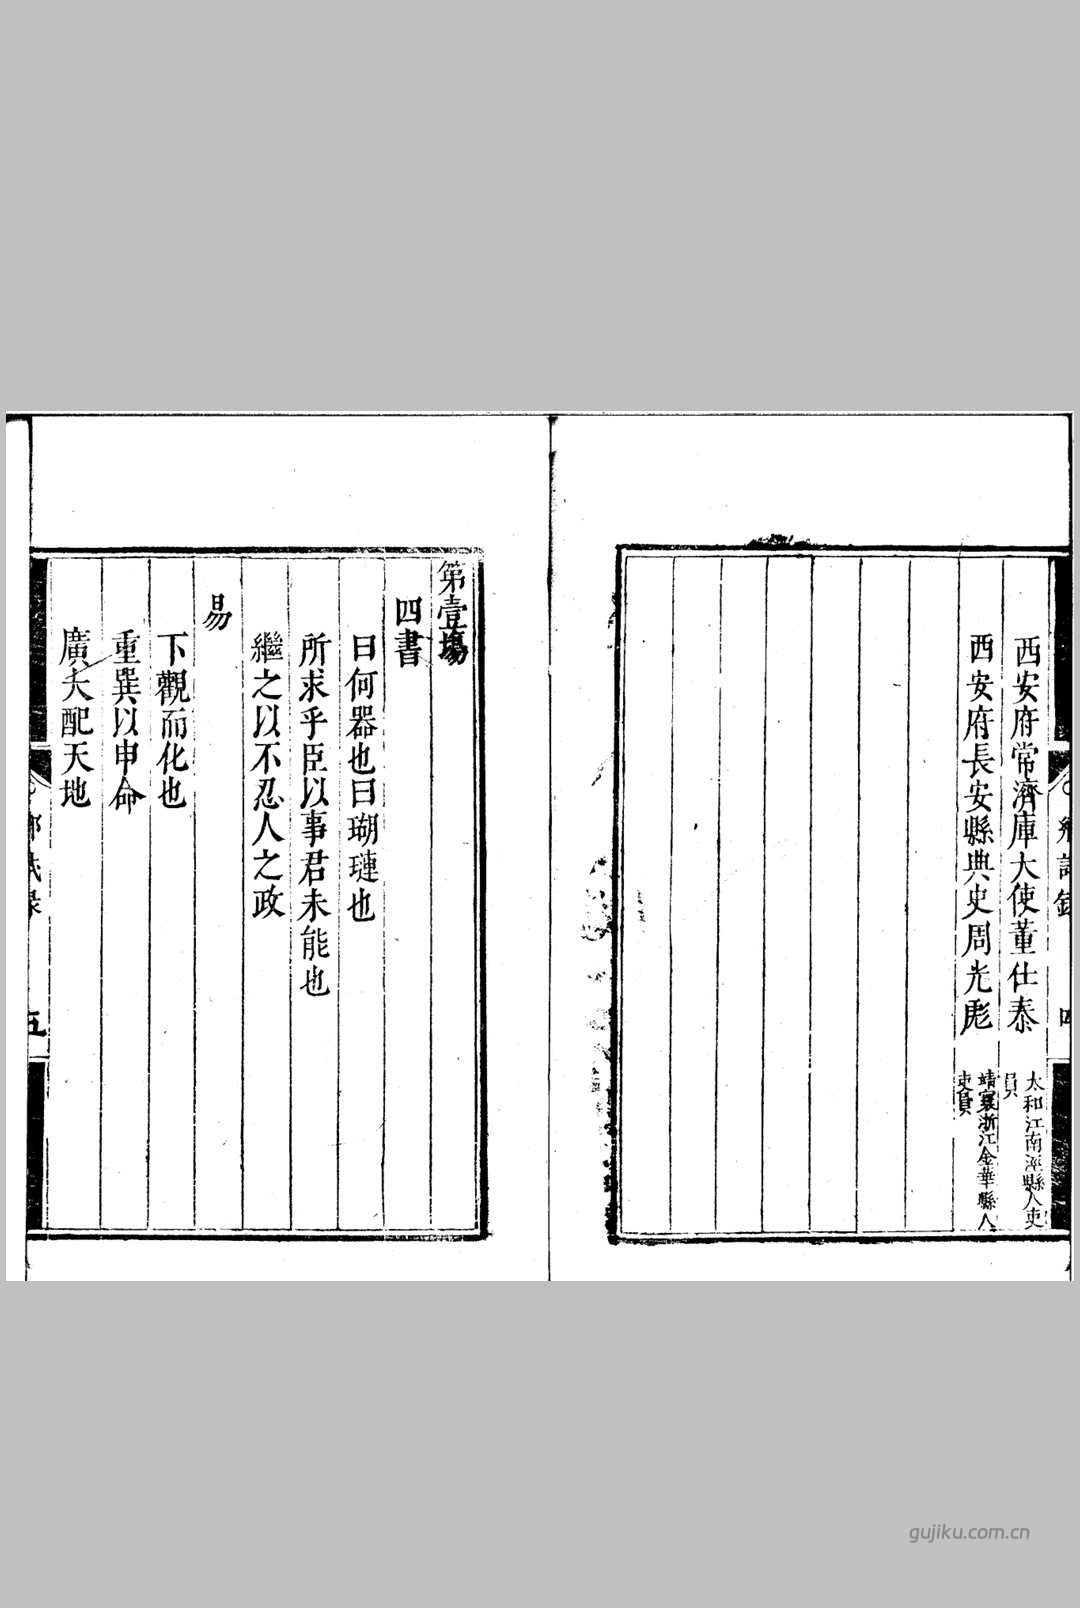 西安府常濟庫大使董仕泰 太和江南涇縣人吏員
西安府長安縣典史周光彪 靖寰浙江金華縣人吏員
第壹塲
四書
曰何器也曰瑚璉也
所求乎臣以事君未能也
繼之以不忍人之政
易
下觀而化也
重巽以申命
廣大配天地
五
gujiku.com.cn